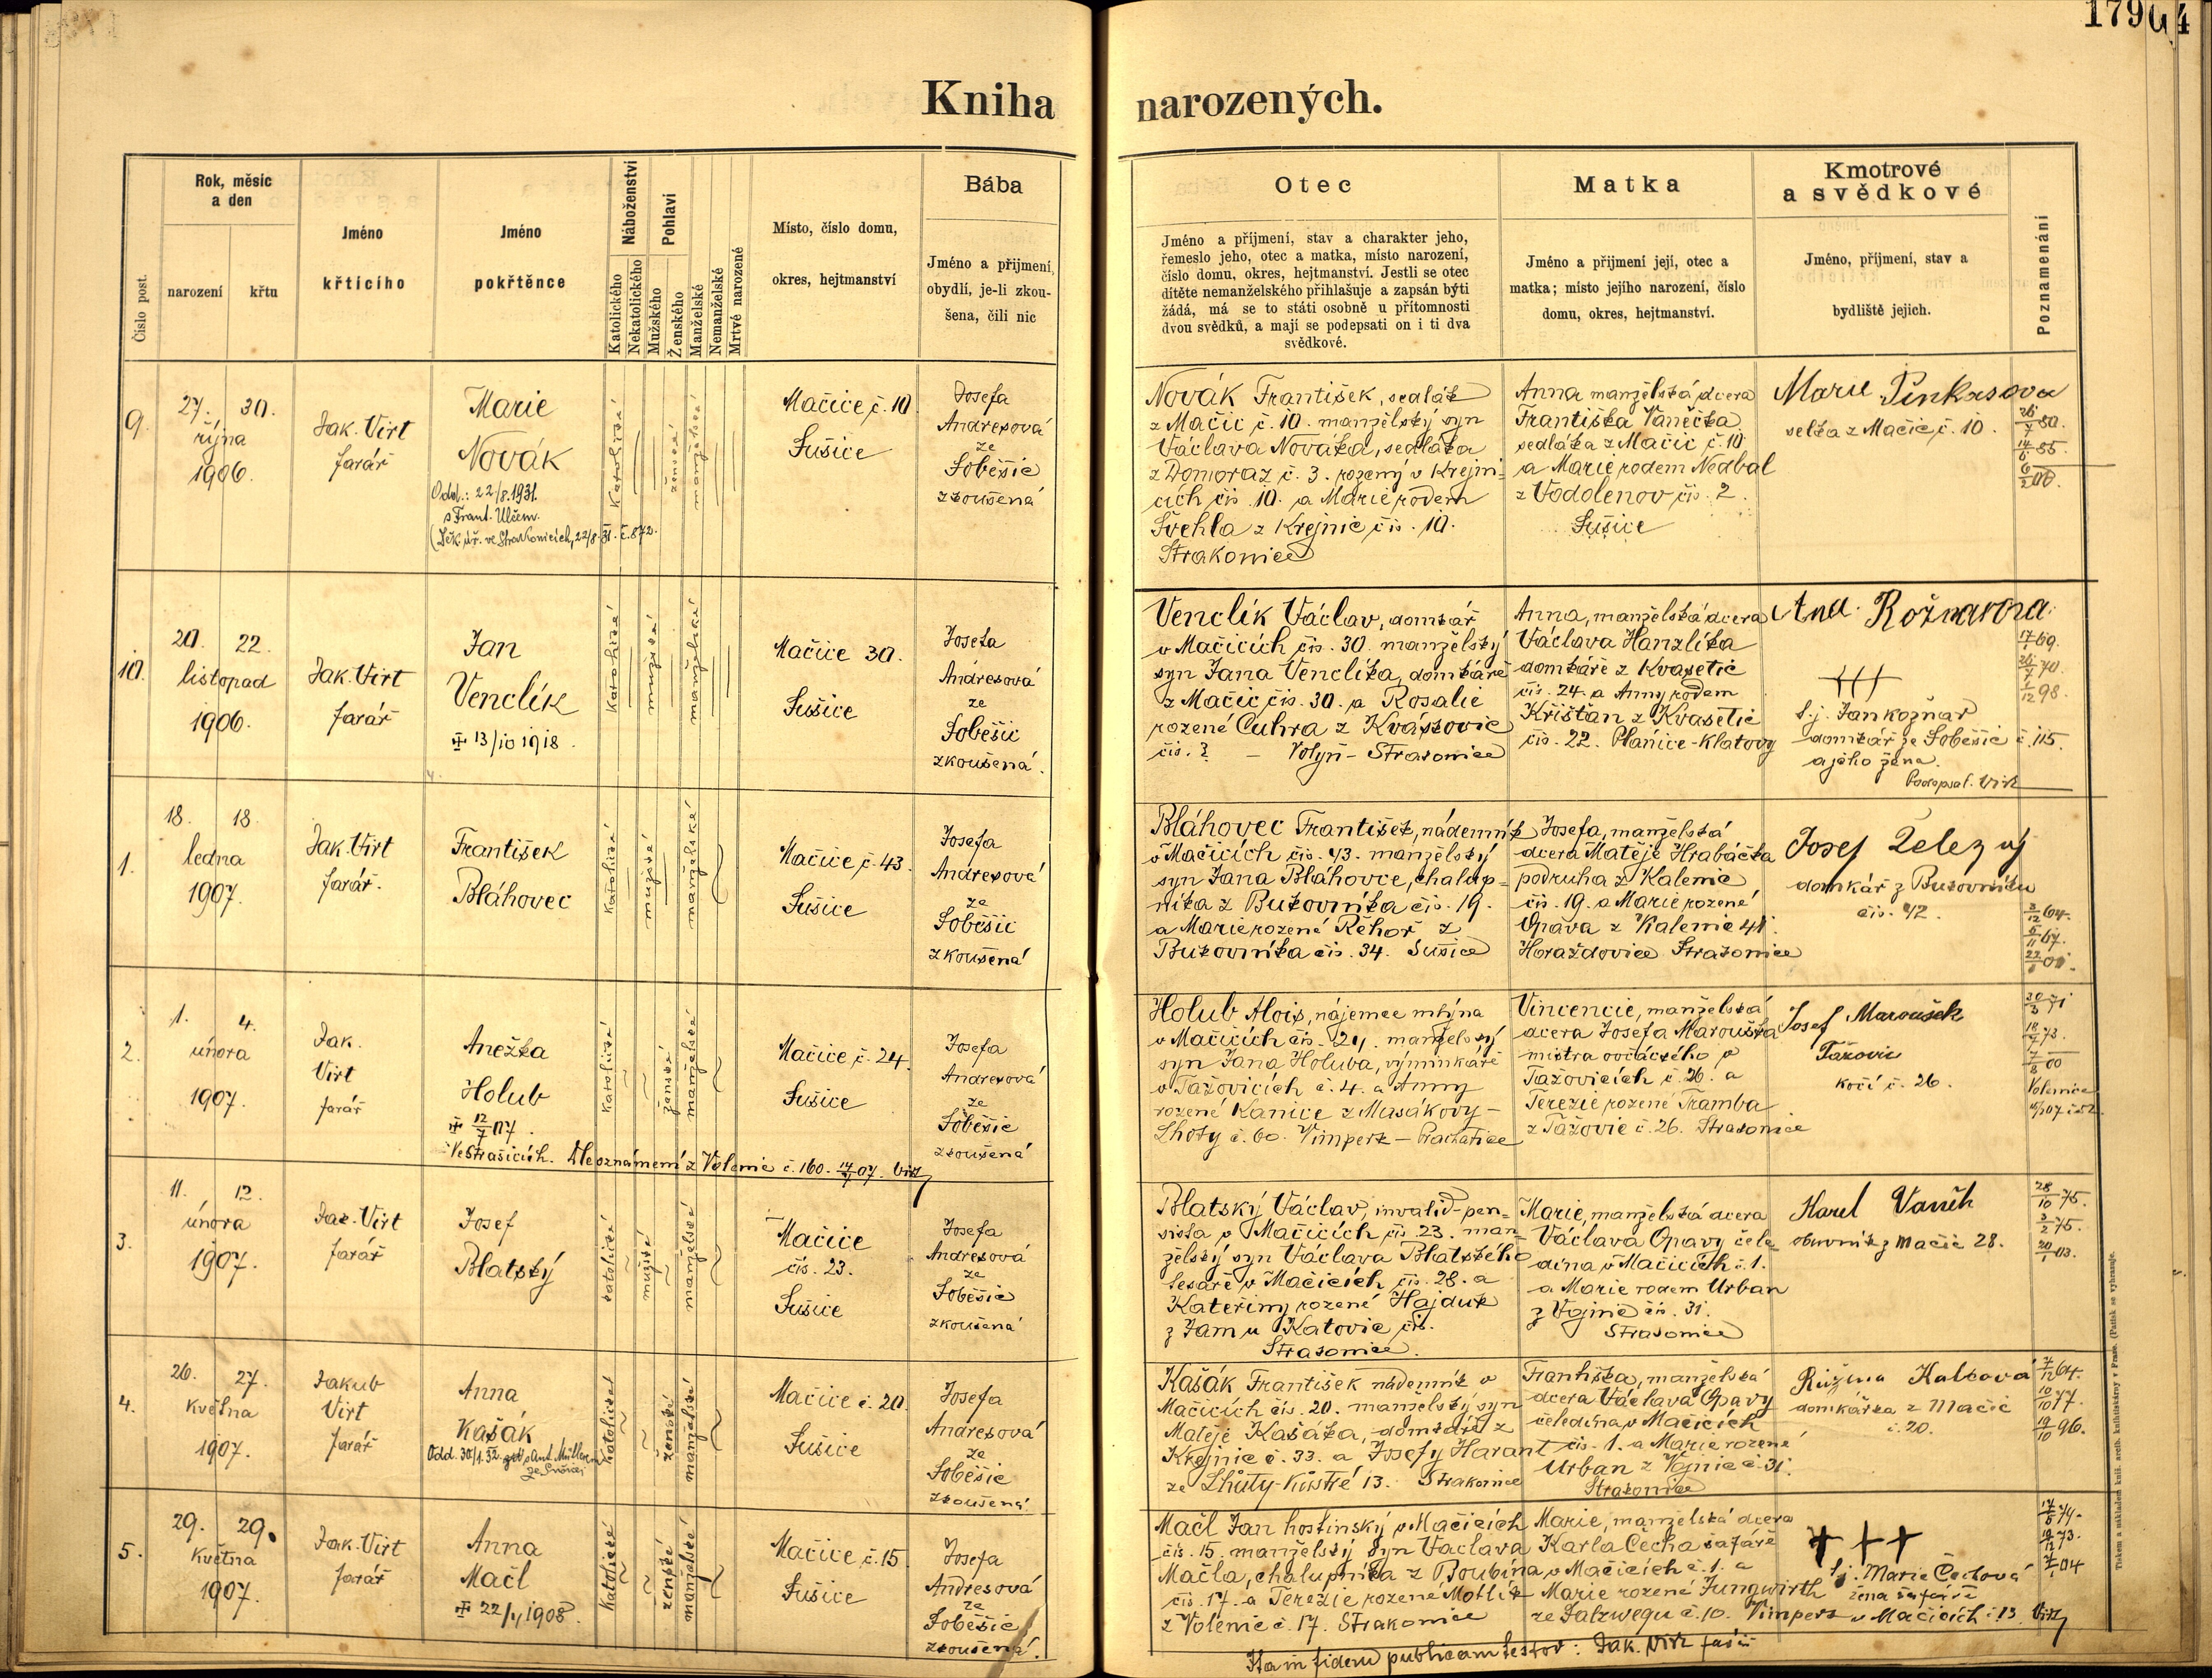 Kniha narozených.
Číslo post.
Rok, měsíc a den
narození
křtu
Jméno
křticího
Jméno
pokřtěnce
Náboženství
Katolického
Nekatolického
Pohlaví
Mužského
Ženského
Manželské
Nemanželské
Mrtvé narozené
Místo, číslo domu,
okres, hejtmanství
Bába
Jméno a příjmení,
obydlí, je-li zkou-
šena, čili nic
Otec
Jméno a příjmení, stav a charakter jeho,
řemeslo jeho, otec a matka, místo narození,
číslo domu, okres, hejtmanství. Jestli se otec
dítěte nemanželského přihlašuje a zapsán býti
žádá, má se to státi osobně u přítomnosti
dvou svědků, a mají se podepsati on i ti dva
svědkové.
Matka
Jméno a příjmení její, otec a
matka; místo jejího narození, číslo
domu, okres, hejtmanství.
Kmotrové
a svědkové
Jméno, příjmení, stav a
bydliště jejich.
Poznamenání
9.
27. 30.
října
1906.
Jak. Virt
farář
Marie
Novák
Odd.: 22/8.1931.
s Frant. Ulčem.
katolické
ženské
manželské
Mačice, č. 10.
Sušice
Josefa
Andresová
ze
Soběšic
zkoušená
Novák František, sedlák
z Mačic č. 10. manželský syn
Václava Nováka, sedláka
z Domoraz č. 3. rozený v Krejni-
cích čís. 10. a Marie rodem
Švehla z Krejnic čís. 10.
Strakonice
Anna manželská dcera
Františka Vaněčka
sedláka z Mačic č. 10
a Marie rodem Nedbal
z Vodolenov čís. 2.
Sušice
Marie Pinkasova
selka z Mačic, č. 10.
10.
20. 22.
listopad
1906.
Jak. Virt
farář
Jan
Venclík
13/10 1918.
katolické
mužské
manželské
Mačice 30.
Sušice
Josefa
Andresová
ze
Soběšic
zkoušená.
Venclík Václav, domkář
v Mačicích čís. 30. manželský
syn Jana Venclíka, domkáře
z Mačic čís. 30. a Rosalie
rozené Cuhra z Kváskovic
čís. ? – Volyň – Strakonice
Anna, manželská dcera
Václava Hanzlíka
domkáře z Kvasetic
čís. 24. a Anny rodem
Křišťan z Kvasetic
čís. 22. Plánice - Klatovy
+++
domkář ze Soběšic č. 115.
a jeho žena.
Podepsal. Virt
1.
18. 18.
ledna
1907.
Jak. Virt
farář.
František
Bláhovec
katolické
mužské
manželské
Mačice, č. 43.
Sušice
Josefa
Andresová
ze
Soběšic
zkoušená
Bláhovec František, nádenník
v Mačicích čís. 43. manželský
syn Jana Bláhovce, chalup-
níka z Bukovníka čís. 19.
a Marie rozené Řehoř z
Bukovníka čís. 34. Sušice
Josefa, manželská
dcera Matěje Hrabáčka
podruha z Kalenic
čís. 19. a Marie rozené
Opava z Kalenic 41.
Horažďovice Strakonice
Josef Železný
domkář z Bukovníku
čís. 42.
2.
1. 4.
února
1907.
Jak.
Virt
farář
Anežka
Holub
12/7 07.
Ve Strašicích. Dle oznámení z Volenic č. 160. Virt
katolické
ženské
manželské
Mačice č. 24.
Sušice
Josefa
Andresová
ze
Soběšic
zkoušená
Holub Alois, nájemce mlýna
v Mačicích čís. 24. manželský
syn Jana Holuba, výminkáře
v Tažovicích č. 4. a Anny
rozené Kanice z Masákovy-
Lhoty č. 60. Vimperk – Prachatice
Vincencie, manželská
dcera Josefa Marouška
mistra ovčáckého v
Tažovicích č. 26. a
Terezie rozené Tramba
z Tažovic č. 26. Strakonice
Josef Maroušek
Tažovic
kočí č. 26.
Volenice
3.
11. 12.
února
1907.
Jak. Virt
farář
Josef
Blatský
katolické
mužské
manželské
Mačice
čís. 23.
Sušice
Josefa
Andresová
ze
Soběšic
zkoušená
Blatský Václav, invalid-pen-
sista v Mačicích čís. 23. man-
želský syn Václava Blatského
tesaře v Mačicích čís. 28. a
Kateřiny rozené Hajduk
z Jam u Katovic čís.
Strakonice.
Marie, manželská dcera
Václava Opavy čele-
dína v Mačicích č. 1.
a Marie rodem Urban
z Vojnic čís. 31.
Strakonice
Karel Vaněk
obuvník z Mačic 28.
4.
26. 27.
května
1907.
Jakub
Virt
farář
Anna
Kašák
katolické
ženské
manželské
Mačice č. 20.
Sušice
Josefa
Andresová
ze
Soběšic
zkoušená
Kašák František nádenník v
Mačicích čís. 20. manželský syn
Matěje Kašáka, domkáře z
Krejnic č. 33. a Josefy Harant
ze Lhůty-Kůstré 13. Strakonice
Františka, manželská
dcera Václava Opavy
čeledína v Mačicích
čís. 1. a Marie rozené
Urban z Vojnic č. 31.
Strakonice
Růžena Kalcová
domkářka z Mačic
č. 20.
5.
29. 29.
května
1907.
Jak. Virt
farář
Anna
Mačl
katolické
ženské
manželské
Mačice, č. 15.
Sušice
Josefa
Andresová
ze
Soběšic
zkoušená.
Mačl Jan hostinský v Mačicích
čís. 15. manželský syn Václava
Mačla, chalupníka z Boubína
čís. 17. a Terezie rozené Motlík
z Volenic č. 17. Strakonice
Marie, manželská dcera
Karla Čecha šafáře
v Mačicích č. 1. a
Marie rozené Jungwirth
ze Salzwegu č. 10. Vimperk
+++
t.j. Marie Čechová
žena šafáře
v Mačicích č. 13. Virt
Ita in fidem publicam testor: Jak. Virt farář